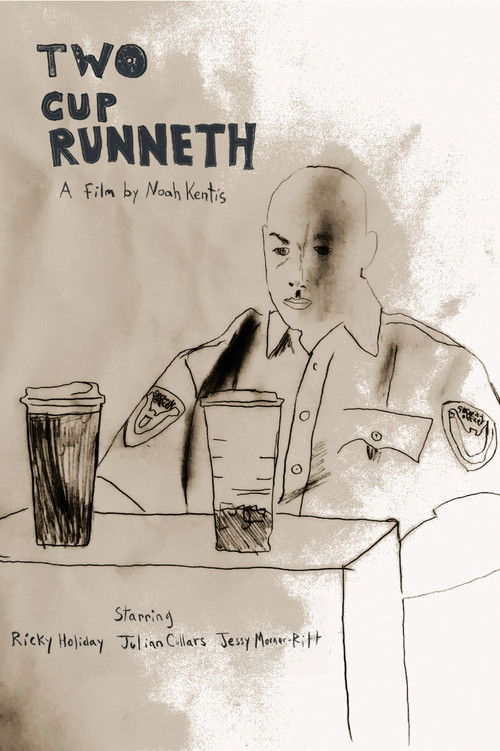 TWO
CUP
RUNNETH
A Film by Noah Kentis
Starring
Ricky Holiday Julian Cullars Jessy Morner-Ritt